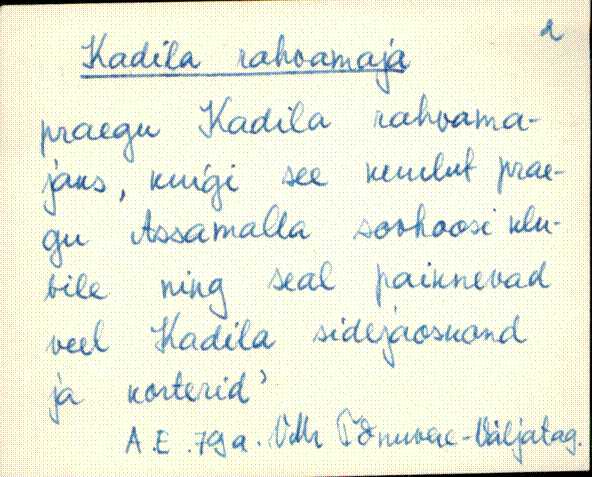 2
Kadila rahvamaja
praegu Kadila rahvama-
jaks, kuigi see kuulut prae-
gu Assamalla sovhoosi klu-
bile ning seal paiknevad
veel Kadila sidejaoskond
ja korterid’
A.E. 79a. VMr Põnurac-Väljatag.